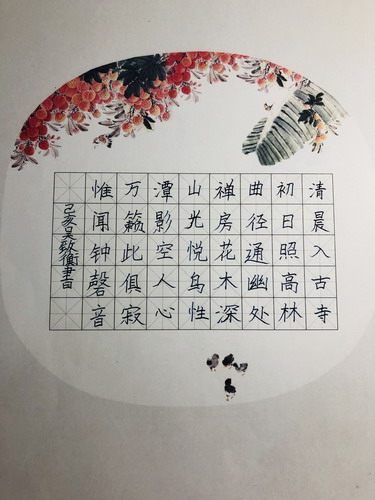 清晨入古寺
初日照高林
曲径通幽处
禅房花木深
山光悦鸟性
潭影空人心
万籁此俱寂
惟闻钟磬音
己亥吴致衡书